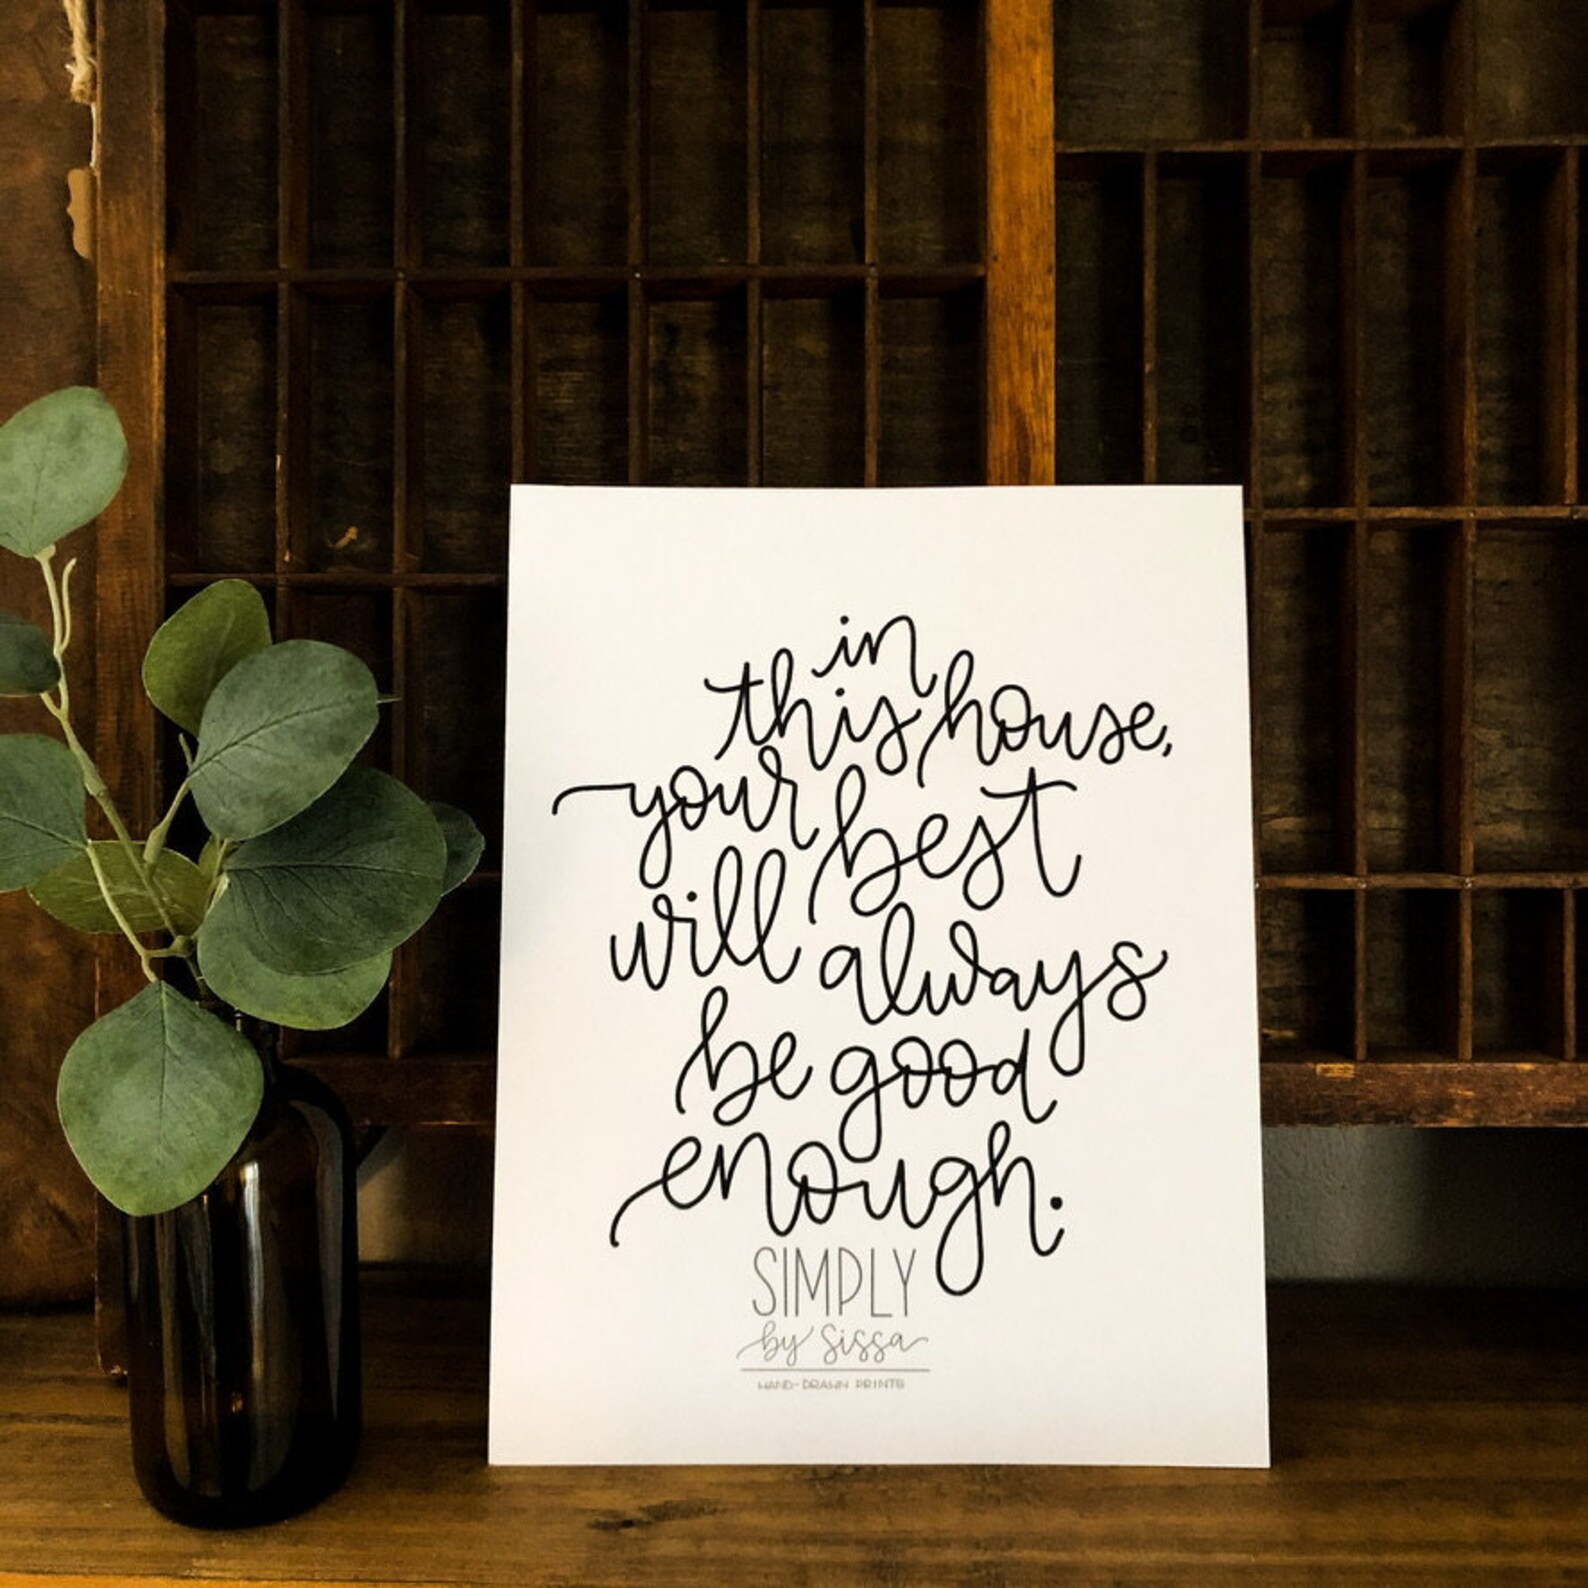 in
this house,
your best
will always
be good
enough.
SIMPLY
by sissa
HAND-DRAWN PRINTS